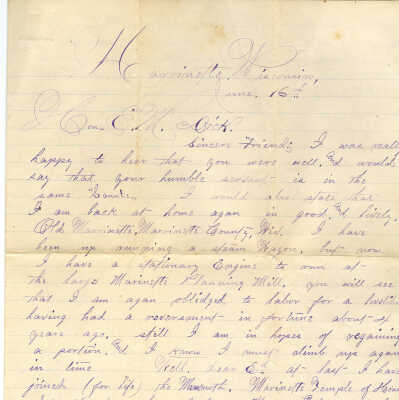 Marrinette, Wisconsin,
June. 16th
Hon. E. M. Dick.
Sincere Friend; I was real
happy to hear that you were well. & would
say that your humble servant is in the
same I would also state that
I am back at home again in good, & lively,
Old Marrinette, Marrinette County, Wis. I have
been up running a steam Wagon. but now
I have a stationary Engine to run at
the large Marinette Planning Mill. you will see
that I am again oblidged to labor for a livelihood
having had a reversement in fortune about 4
years ago. still I am in hopes of regaining
a portion. & I know I must climb up again
in time Well. dear E. at last I have
joined (for life) the Mammoth. Marinette Temple of Honor